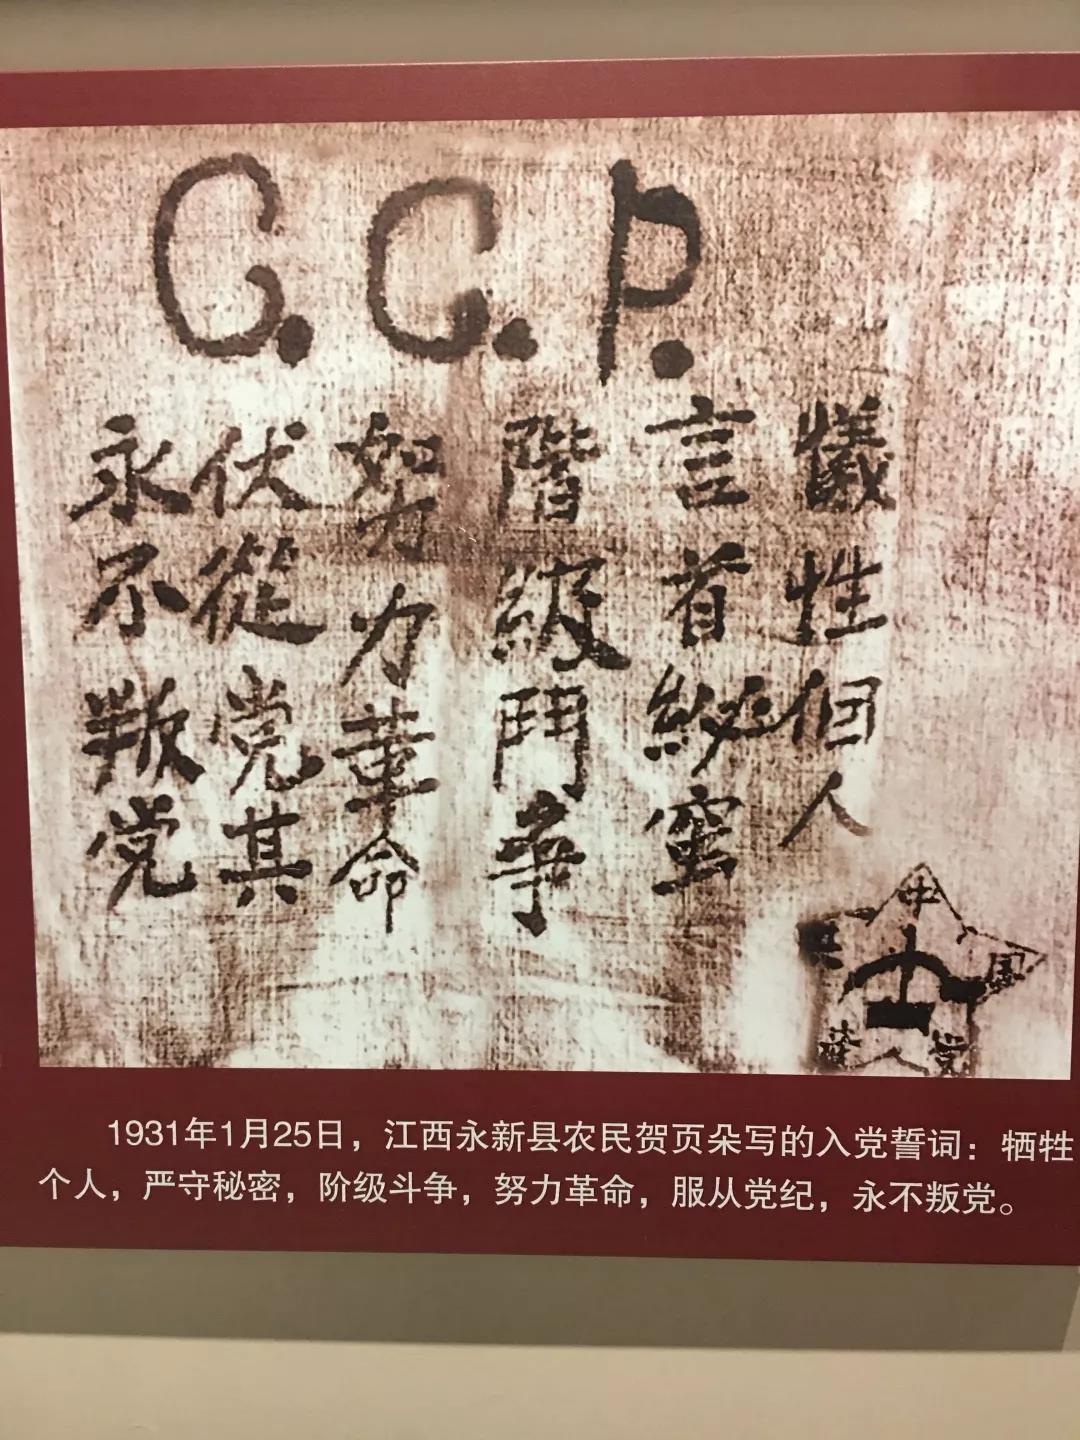 C.C.P.
犠性個人
言首紗窰
階級鬥争
努力革命
伏從党其
永不叛党
中国共産党
1931年1月25日，江西永新县农民贺页朵写的入党誓词：牺牲
个人，严守秘密，阶级斗争，努力革命，服从党纪，永不叛党。